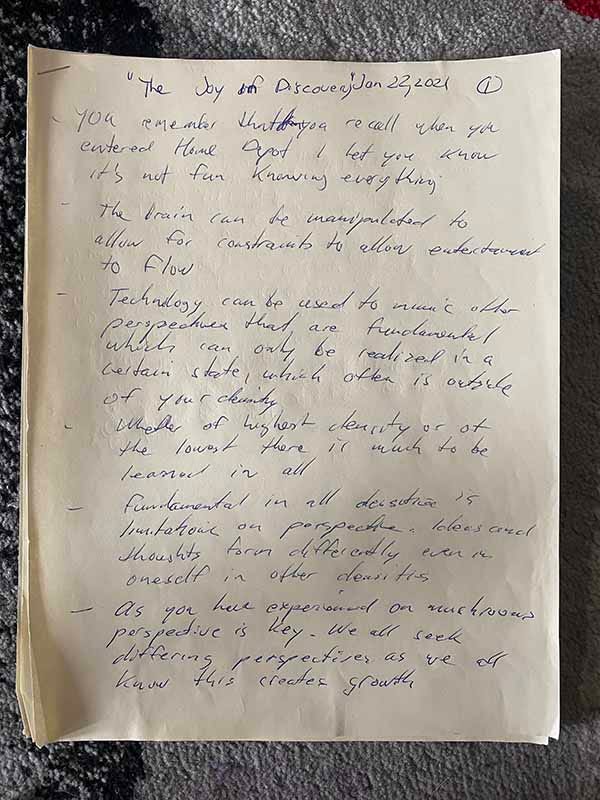 "The Joy of Discovery" Jan 22, 2021 ①
- You remember that you recall when you
entered Home Depot I let you know
it's not fun knowing everything
- The brain can be manipulated to
allow for constraints to allow entertainment
to flow
- Technology can be used to mimic other
perspectives that are fundamental
which can only be realized in a
certain state, which often is outside
of your density
- Whether of highest density or of
the lowest there is much to be
learned in all
- Fundamental in all densities is
limitations on perspective. Ideas and
thoughts form differently even in
oneself in other densities
- As you have experienced on mushrooms
perspective is key. We all seek
differing perspectives as we all
know this creates growth